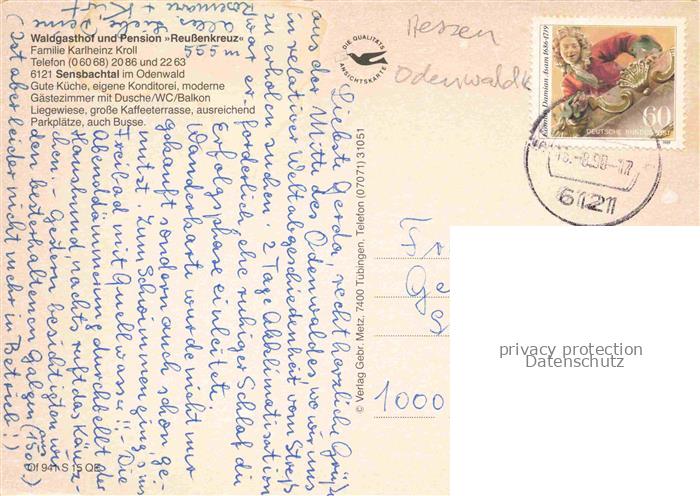 Waldgasthof und Pension »Reußenkreuz«
Familie Karlheinz Kroll
Telefon (0 60 68) 20 86 und 22 63
6121 Sensbachtal im Odenwald
Gute Küche, eigene Konditorei, moderne
Gästezimmer mit Dusche/WC/Balkon
Liegewiese, große Kaffeeterrasse, ausreichend
Parkplätze, auch Busse.
555 m
DIE QUALITÄTS
ANSICHTSKARTE
Hessen
Odenwaldk
Cosmas Damian Asam 1686-1739
60
DEUTSCHE BUNDESPOST
6121
© Verlag Gebr. Metz, 7400 Tübingen, Telefon (07071) 31051
Liebste Gerda, recht herzliche Grüße
aus der Mitte des Odenwaldes, wo wir uns
in relativer Weltabgeschiedenheit vom Streß
zu erholen suchen. 2 Tage Akklimatisation
war erforderlich, ehe ruhiger Schlaf die
Erfolgsphase einleitete.
Wanderkarte wurde nicht nur
gekauft sondern auch schon ge-
nutzt. Zum Schwimmen ging's ins
Freibad mit Quellwasser!! - Die
Abenddämmerung durchbellt der
Haushund, nachts ruft das Käuz-
chen. - Gestern besichtigten wir
den besterhaltenen Galgen (aus 1500)
(Ist aber leider nicht mehr in Betrieb!)
Rosemarie + Kurt
Fr
Ge
1000
Of 941 S 15 QE
privacy protection
Datenschutz